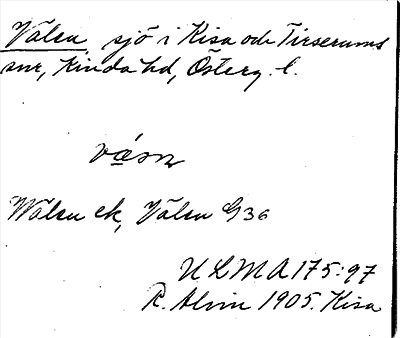 Välsu sjö i Kisa och Tirserums
snr, Kinda hd, Österg. l.
Wälsu ek, Välsu G36
ULMA 175:97
R. Alvin 1905. Kisa